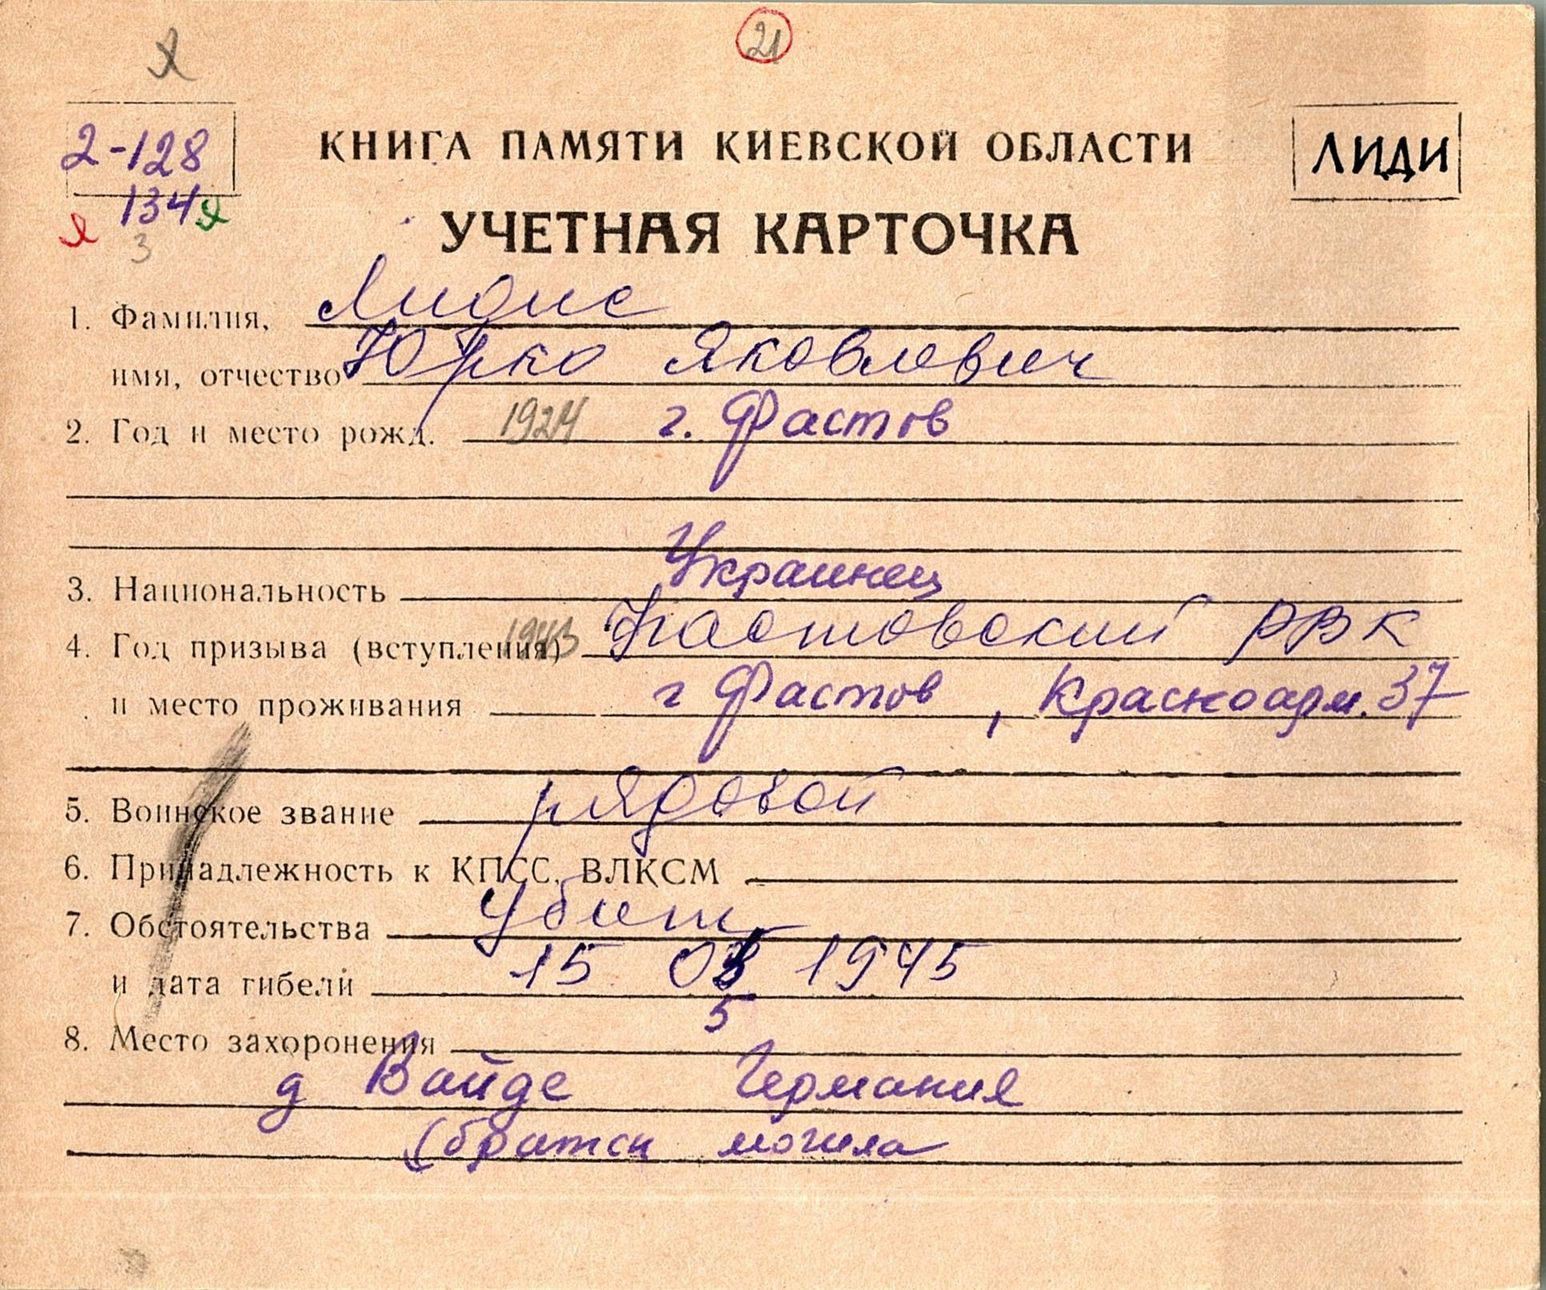 21
2-128
КНИГА ПАМЯТИ КИЕВСКОЙ ОБЛАСТИ
ЛИДИ
134
Я
3
УЧЕТНАЯ КАРТОЧКА
1. Фамилия, Лидис
имя, отчество Юрко Яковлевич
2. Год и место рожд. 1924 г. Фастов
3. Национальность Украинец
4. Год призыва (вступления) 1943 Фастовский РВК
и место проживания г Фастов, Красноарм. 37
5. Воинское звание рядовой
6. Принадлежность к КПСС, ВЛКСМ
7. Обстоятельства убит
и дата гибели 15 1945
5
8. Место захоронения
д Вайде Германия
(братск могила